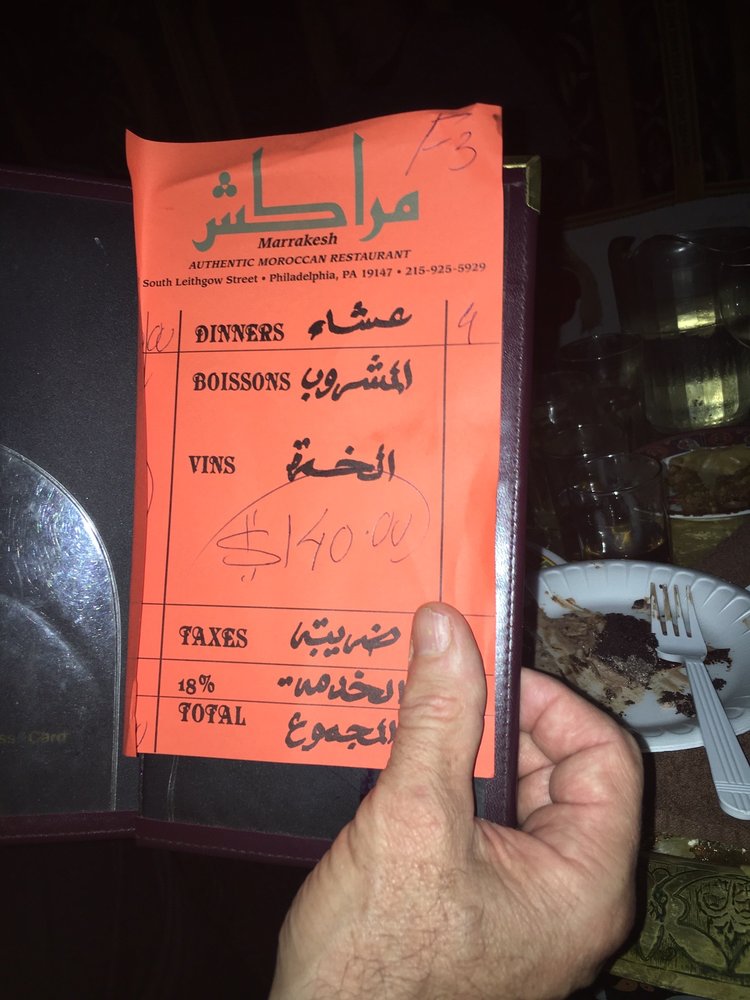 F-3
مراكش
Marrakesh
AUTHENTIC MOROCCAN RESTAURANT
South Leithgow Street • Philadelphia, PA 19147 • 215-925-5929
DINNERS عشاء
BOISSONS المشروب
VINS الخمرة
$140.00
TAXES ضريبة
18% الخدمة
TOTAL المجموع
Card